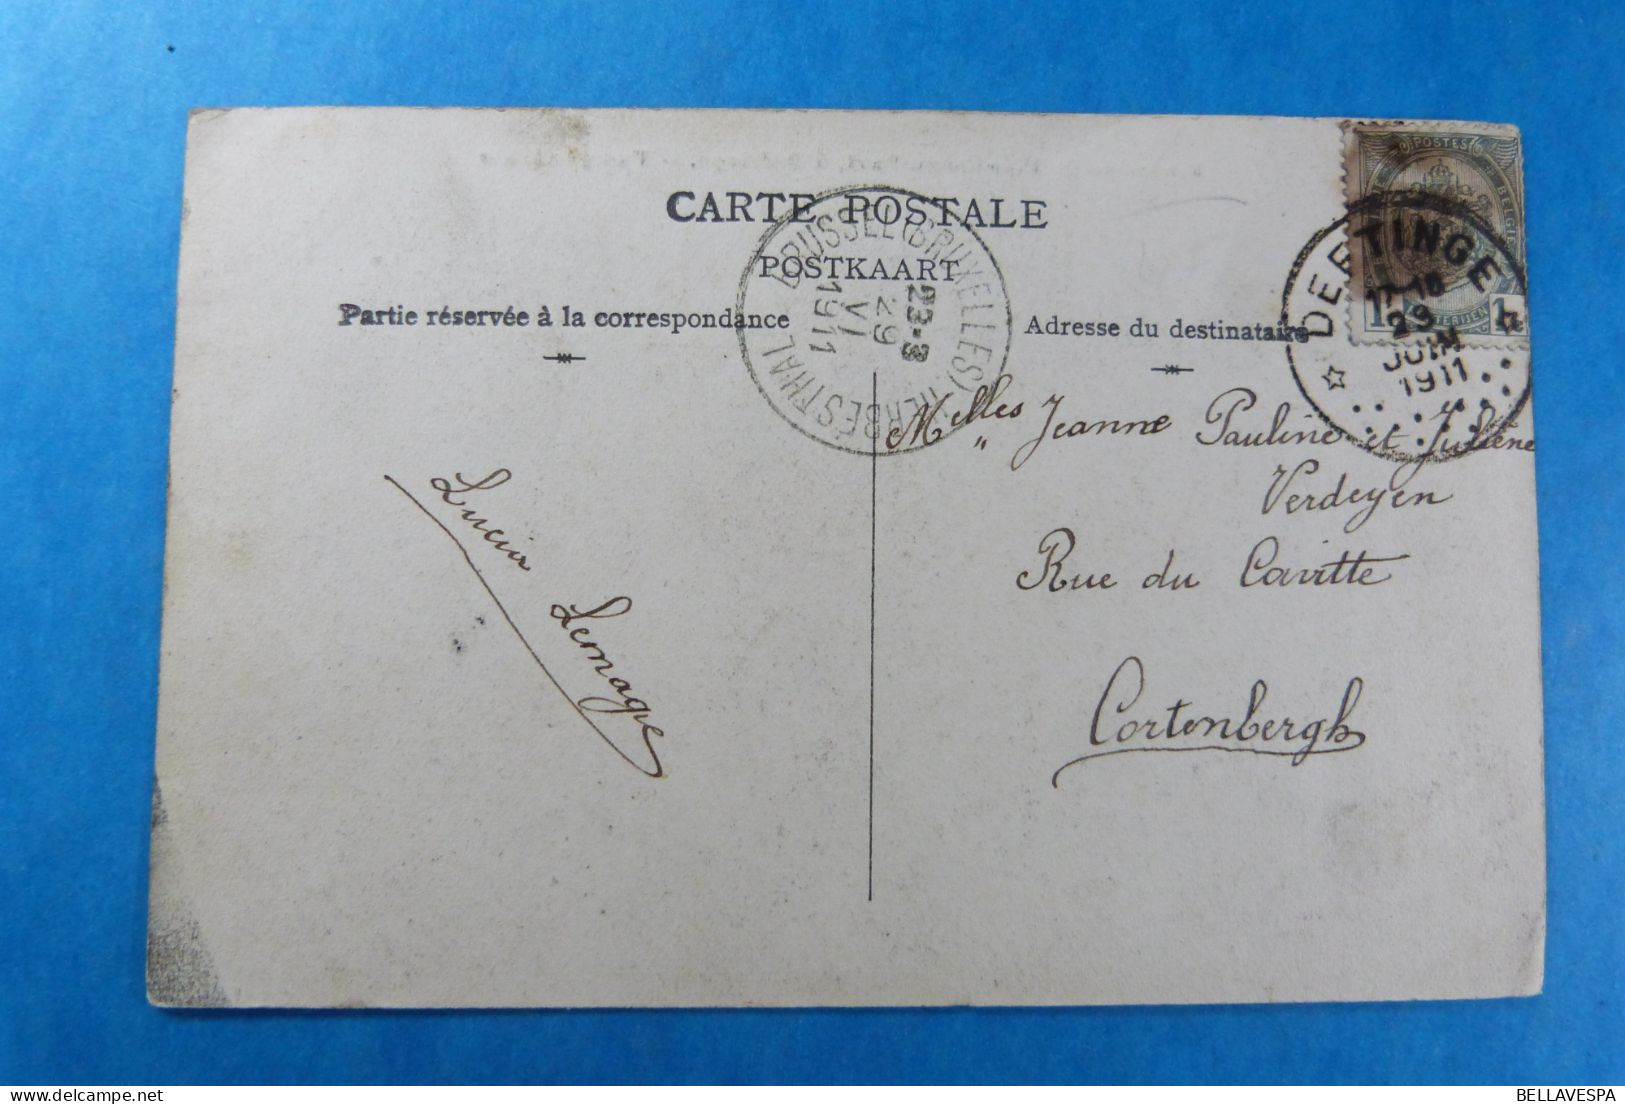 CARTE POSTALE
POSTKAART
Partie réservée à la correspondance
Adresse du destinataire
BRUSSEL (BRUXELLES) HERBESTHAL
23-3
29
VI
1911
POSTES
BELGIQUE
1 1
DEFTINGE
17-18
29
JUIN
1911
Melles Jeanne Pauline et Juliène
" Verdeyen
Rue du
Cortenbergh
Lucia
Lemaque
BELLAVESPA